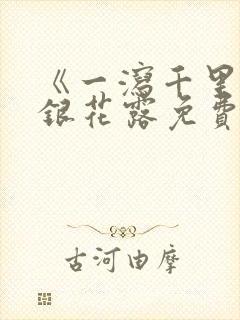 《一瀉千里
銀花露免費
古河由摩